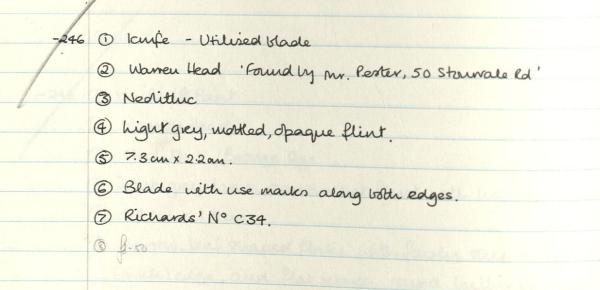 -246 ① Knife - Utilised blade
② Warren Head 'Found by Mr. Pester, 50 Stourvale Rd'
③ Neolithic
④ Light grey, mottled, opaque flint.
⑤ 7.3cm x 2.2cm.
⑥ Blade with use marks along both edges.
⑦ Richards' Nº C34.
⑧ £-50